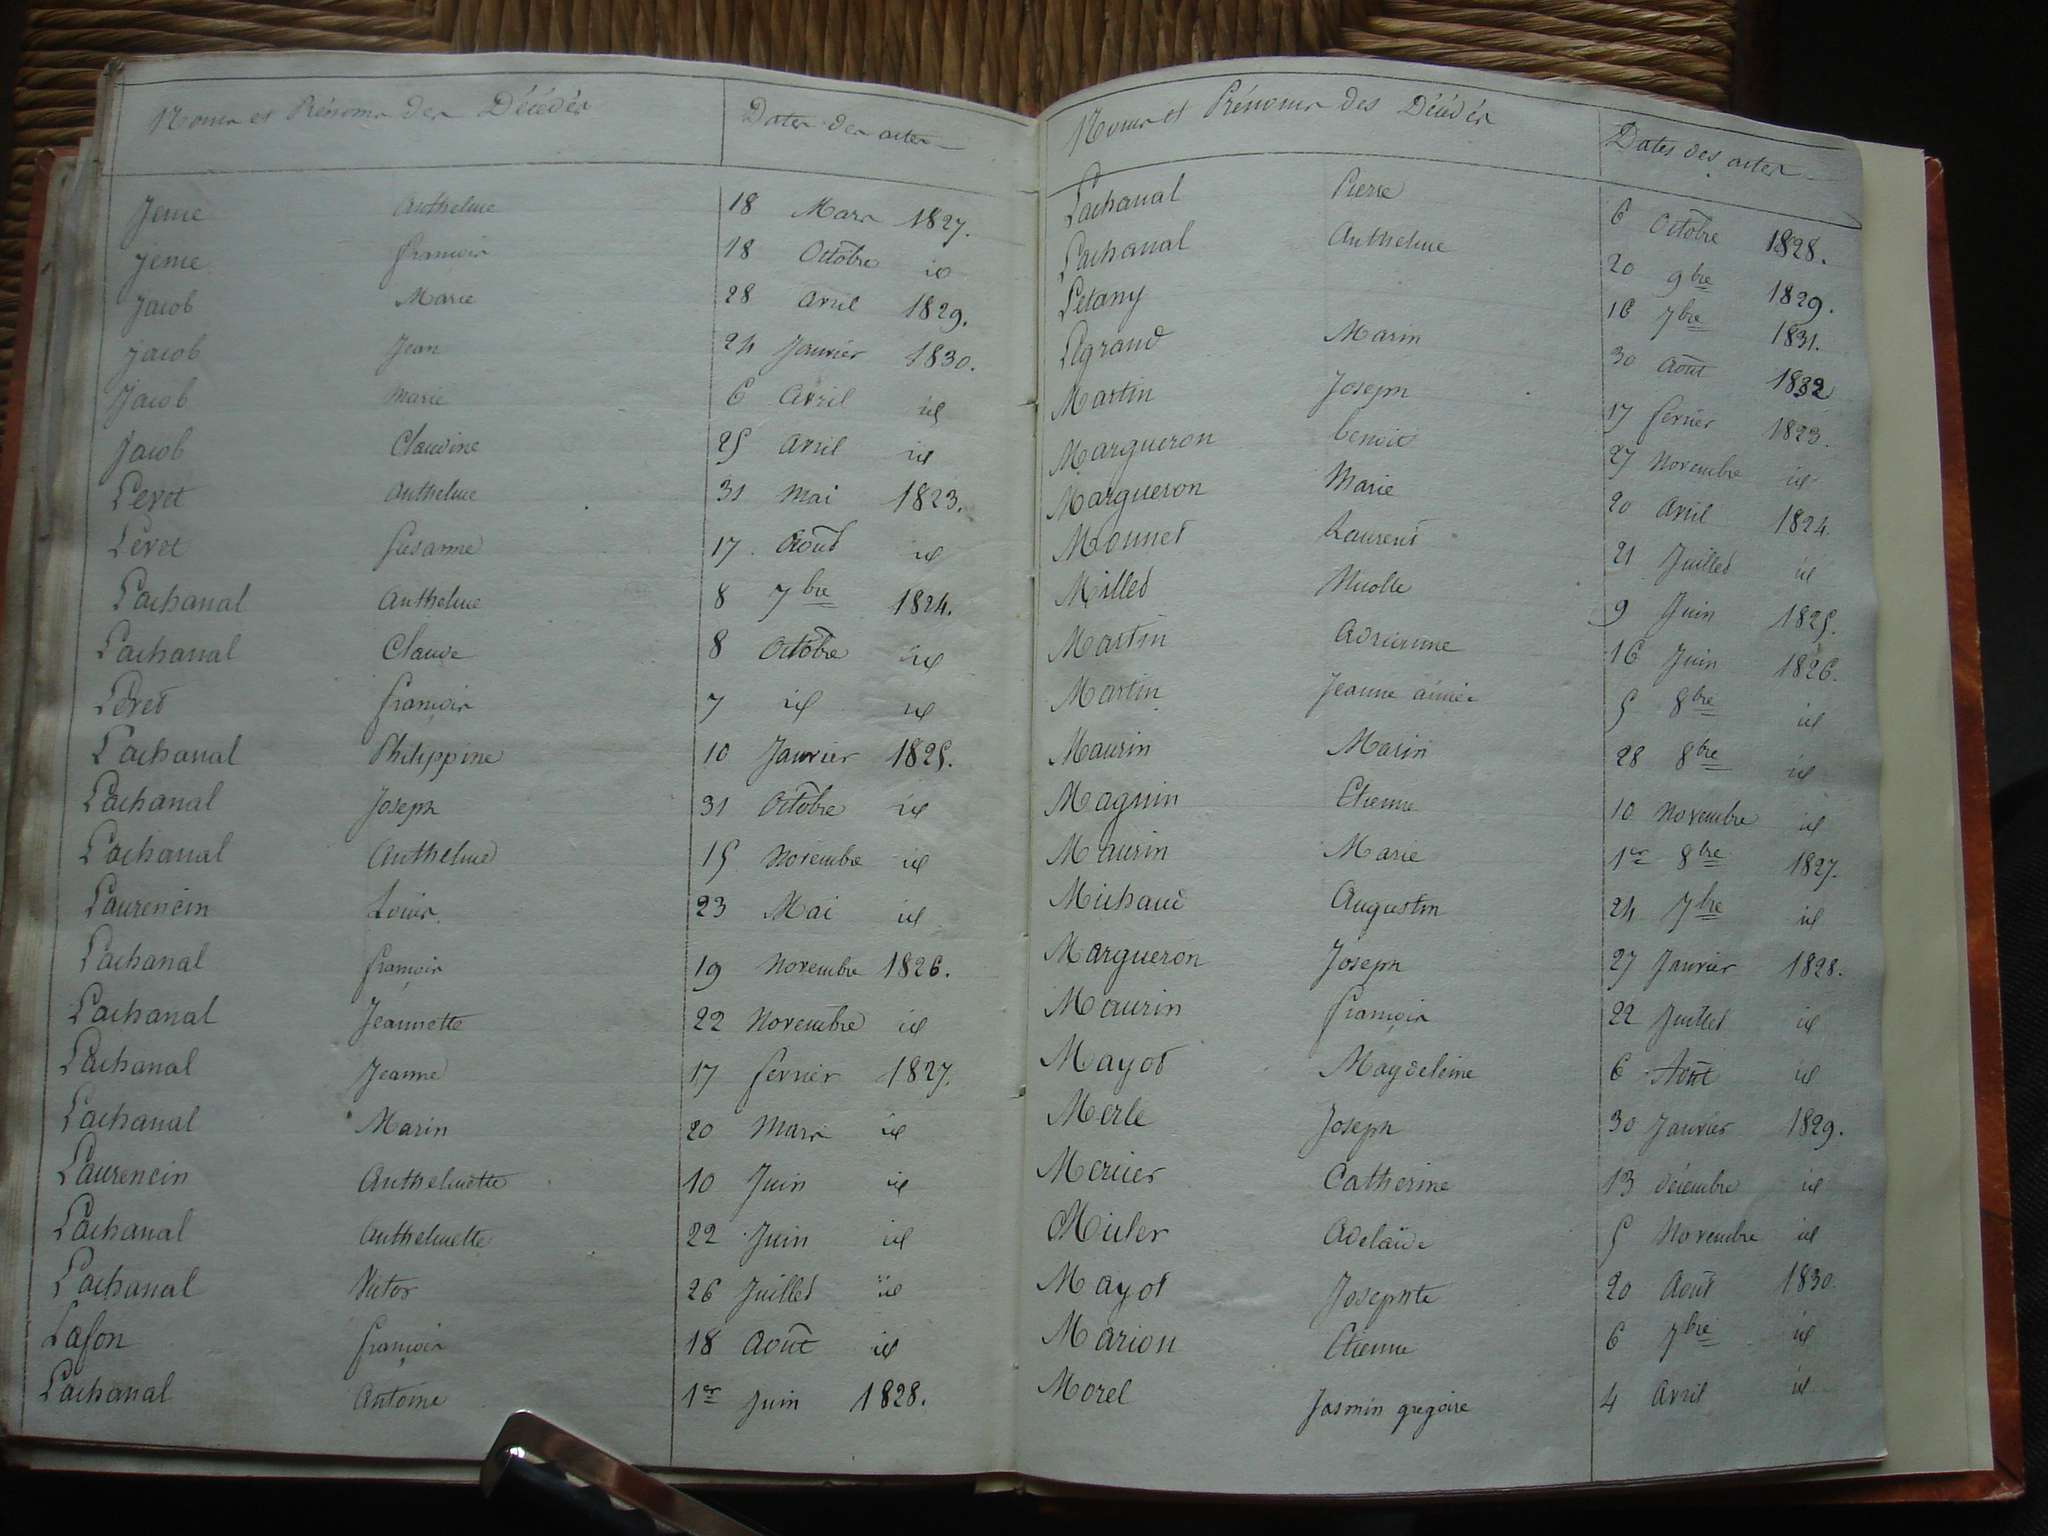 Noms et Prénoms des Décédés Dates des actes
Jeme Anthelme 18 Mars 1827.
jeme François 18 Octobre id
Jacob Marie 28 avril 1829.
jacob Jean 24 Janvier 1830.
Jacob Marie 6 avril id
Jacob Claudine 25 avril id
Peret Anthelme 31 Mai 1823.
Peret Susanne 17 Août id
Lachanal Anthelme 8 7bre 1824.
Lachanal Claude 8 Octobre id
Peret François 7 id id
Lachanal Philippine 10 Janvier 1825.
Lachanal Joseph 31 Octobre id
Lachanal Anthelme 15 Novembre id
Laurencin Louis 23 Mai id
Lachanal François 19 Novembre 1826.
Lachanal Jeannette 22 Novembre id
Lachanal Jeanne 17 fevrier 1827.
Lachanal Marin 20 Mars id
Laurencin Anthelmette 10 Juin id
Lachanal Anthelmette 22 Juin id
Lachanal Victor 26 Juillet id
Lafon François 18 Août id
Lachanal Antoine 1er Juin 1828.
Noms et Prénoms des Décédés Dates des actes
Lachanal Pierre 6 Octobre 1828.
Lachanal Anthelme 20 9bre 1829.
Letany 16 7bre 1831.
Legrand Marin 30 Août 1832
Martin Joseph 17 fevrier 1823.
Margueron benoit 27 Novembre id
Margueron Marie 20 avril 1824.
Monnet Laurent 21 Juillet id
Millet Nicolle 9 Juin 1825.
Martin Adrianne 16 Juin 1826.
Martin Jeanne aimée 5 8bre id
Maurin Marin 28 8bre id
Magnin Etienne 10 Novembre id
Maurin Marie 1er 8bre 1827.
Michaud Augustin 24 7bre id
Margueron Joseph 27 Janvier 1828.
Maurin François 22 Juillet id
Mayot Maydeleine 6 Août id
Merle Joseph 30 Janvier 1829.
Mercier Catherine 13 décembre id
Miuler Adelaide 5 Novembre id
Mayot Josephte 20 Août 1830.
Marion Etienne 6 7bre id
Morel Jasmin gregoire 4 avril id